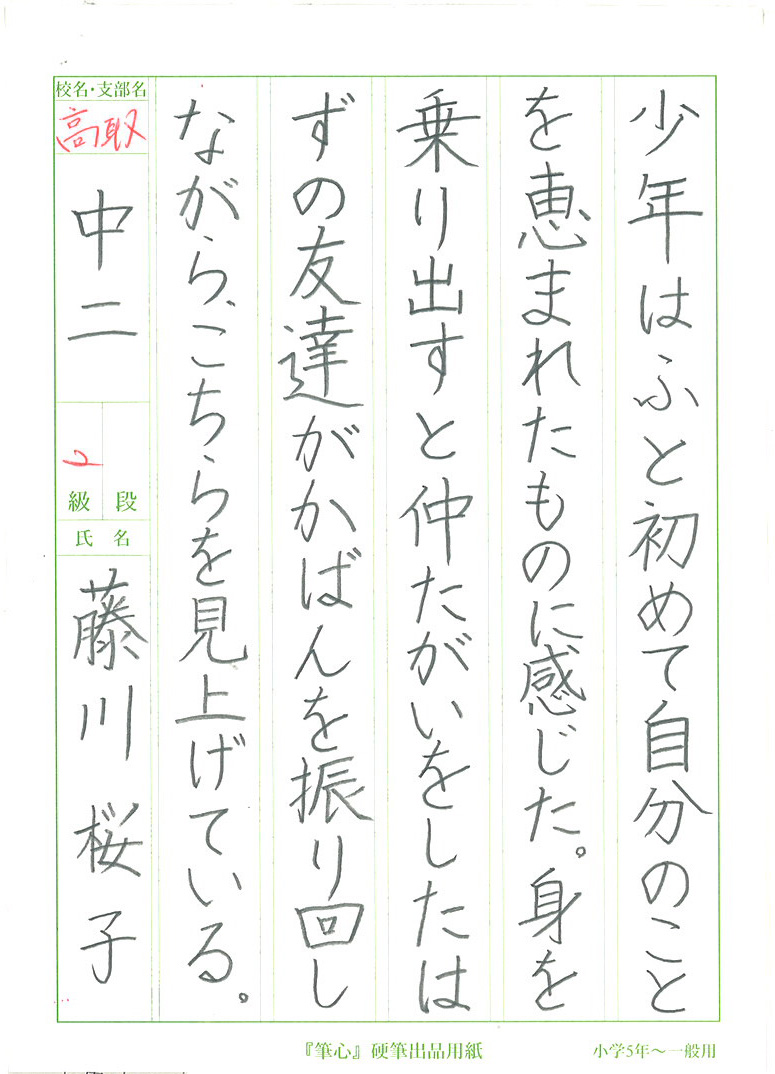 少年はふと初めて自分のこと
を恵まれたものに感じた。身を
乗り出すと仲たがいをしたは
ずの友達がかばんを振り回し
ながら、こちらを見上げている。
校名・支部名
高取
中二
2
級 段
氏名
藤川桜子
『筆心』硬筆出品用紙
小学5年～一般用